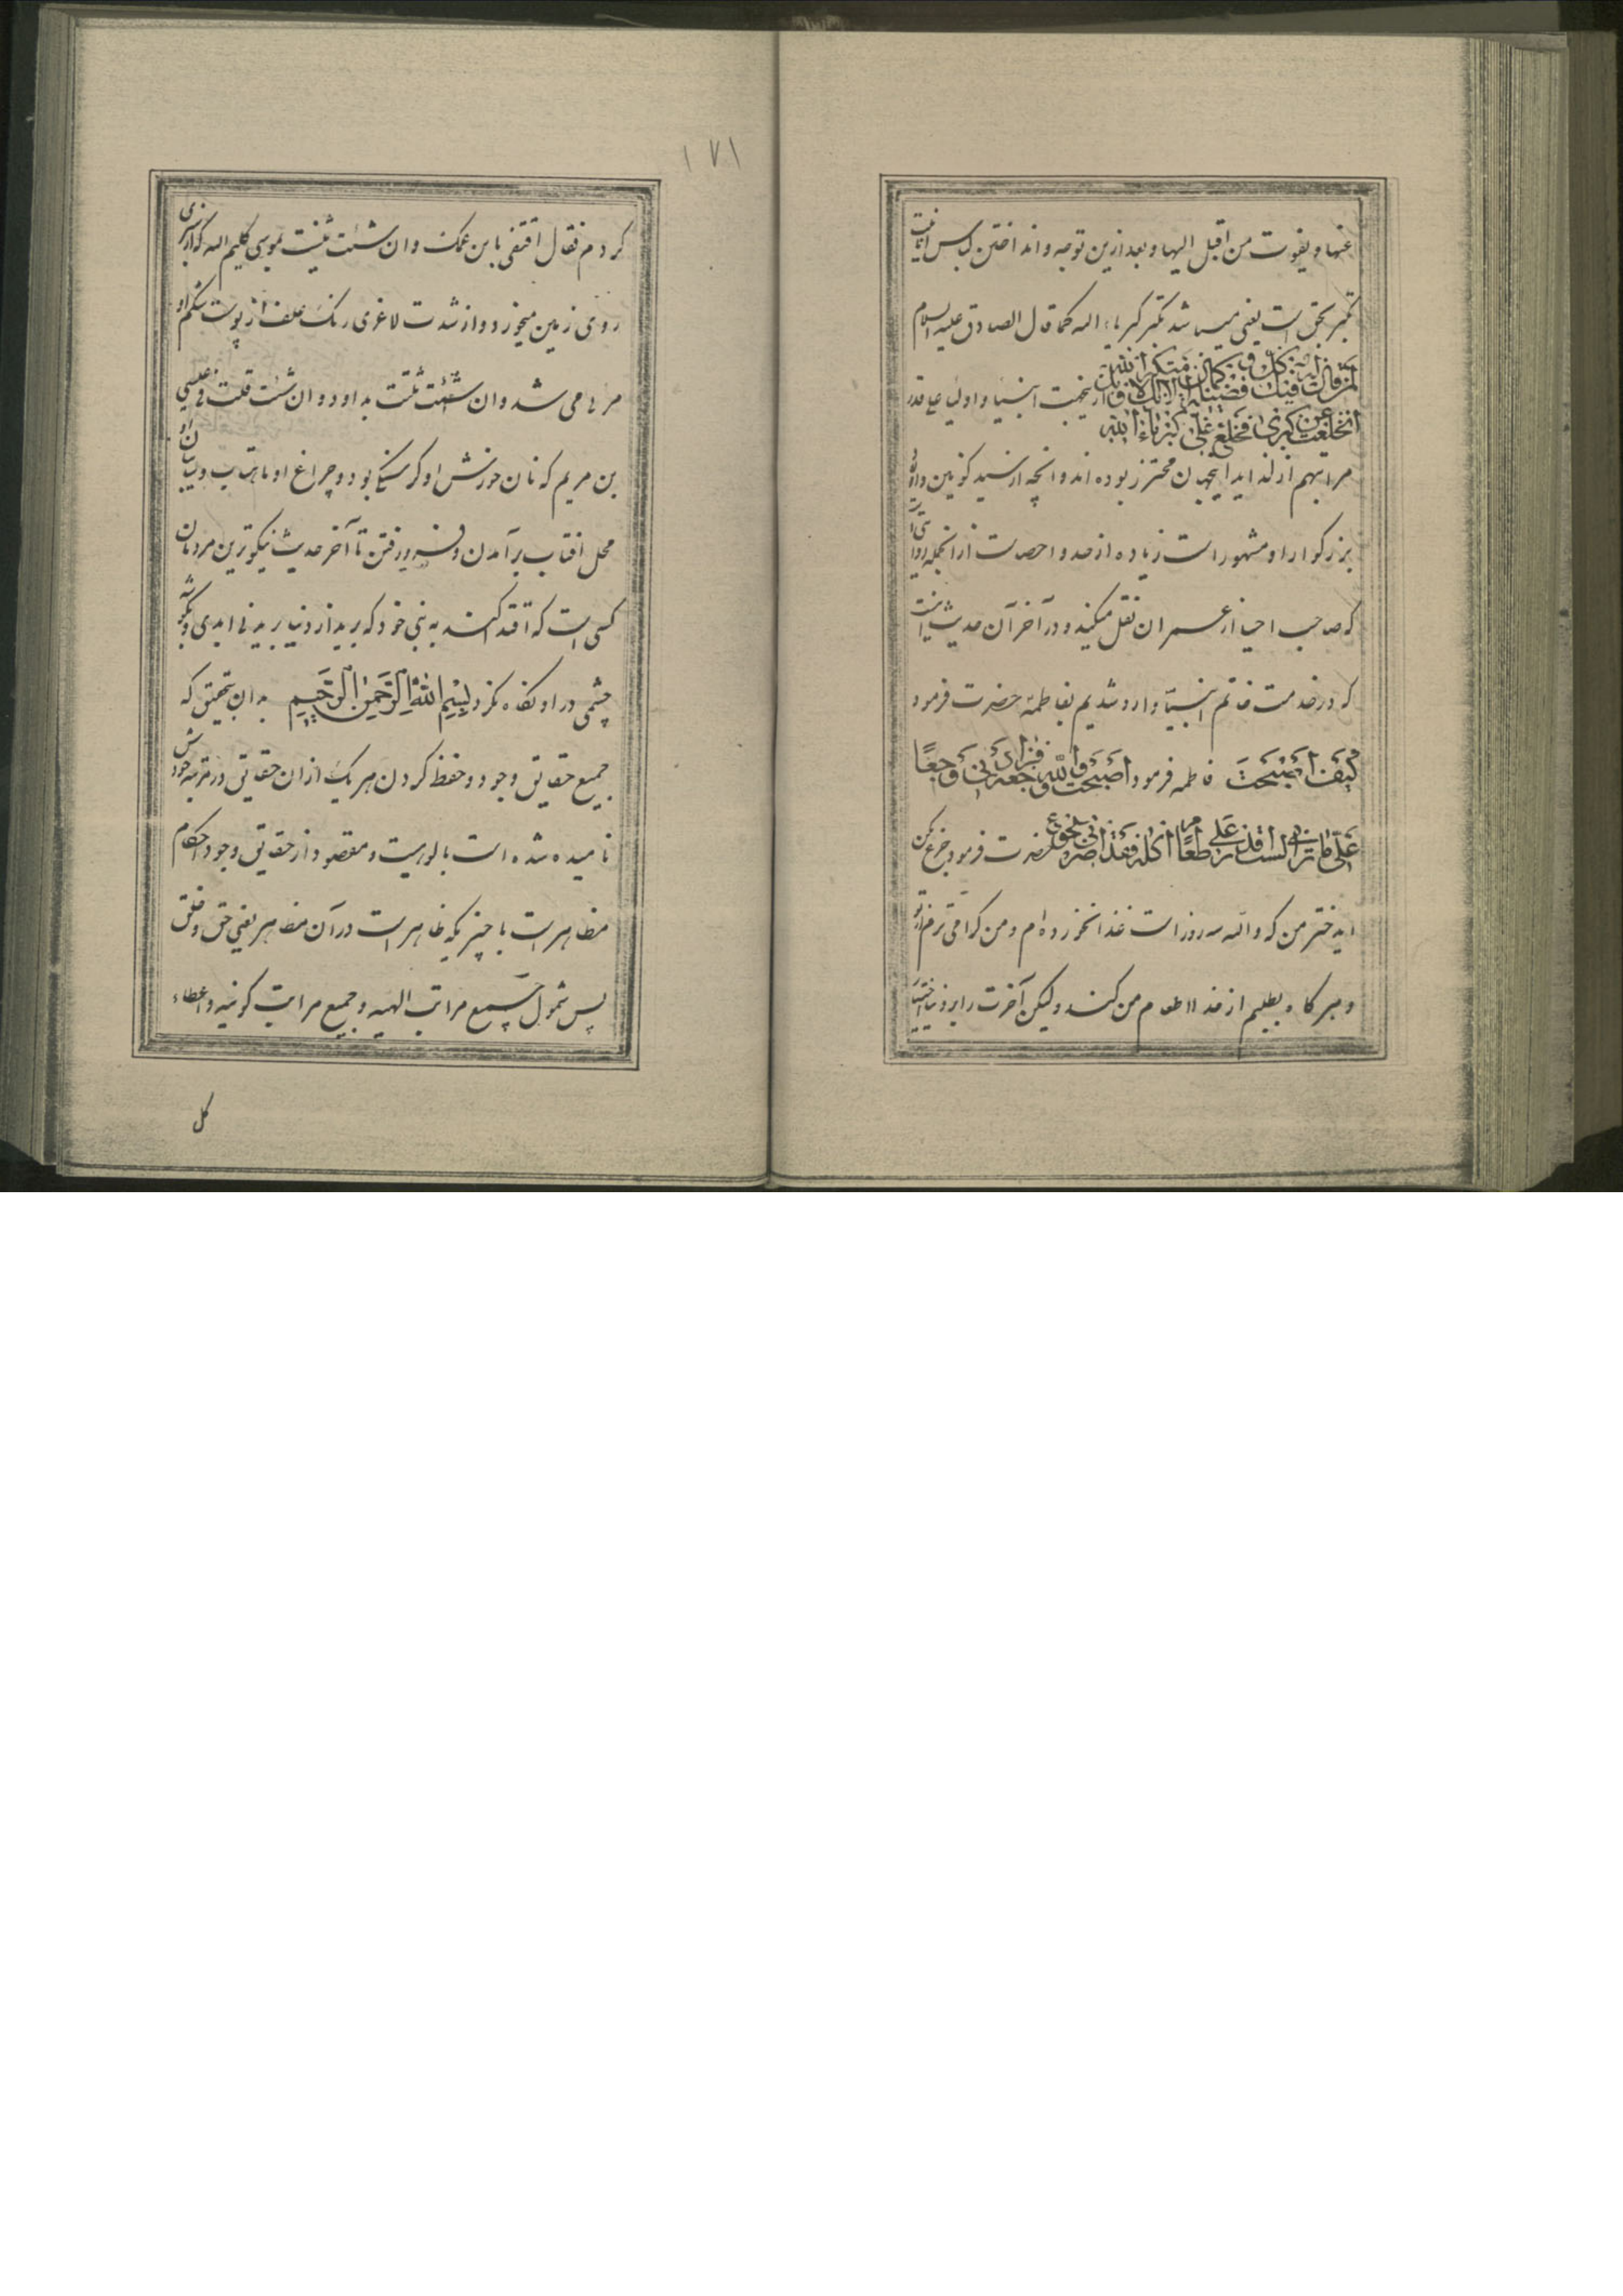 عنها و یفوت من اقبل الیها و بعد ازین توجه و انداختن لباس انانیت
تکبر بحق است یعنی میباشد تکبر کبریاء الله کما قال الصادق علیه السلام
لمن قال له فیک کل فضیلة الا انک متکبر
انخلعت عن کبری فخلع علی کبریاء الله ازینجهت انبیا و اولیا علی قدر
مراتبهم از لذاید اینجهان محترز بوده‌اند و آنچه از سید کونین و اولاد
بزرگوار او مشهور است زیاده از حد و احصاست از آنجمله روایتی
که صاحب احیا از عمران نقل میکند و در آخر آن حدیث اینست
که در خدمت خاتم انبیا وارد شدیم بفاطمه حضرت فرمود
کیف اصبحت فاطمه فرمود اصبحت والله وجعة فزادنی وجعا
علی ما بی انی لست اقدر علی طعام آکله فقد اضر بی الجوع حضرت فرمود جزع مکن
ایدختر من که والله سه روز است غذا نخورده‌ام و من گرامی ترم از تو
و هرگاه بطلبم از خدا اطعام من کند ولیکن آخرت را بر دنیا اختیار
۱۷۱
کردم فقال اقتفی بابن عمک و ان شئت ثنیت بموسی کلیم الله که از سبزی
روی زمین میخورد و از شدت لاغری رنک علف از پوست شکم او
مرئی می شد و ان شئت ثلثت بداود و ان شئت قلت فی عیسی
بن مریم که نان خورش او گرسنگی بود و چراغ او ماهتاب و سایبان او
محل افتاب برآمدن و فرو رفتن تا آخر حدیث نیکوترین مردمان
کسی است که اقتدا کند به نبی خود که برید از دنیا بریدنی ابدی و بگوشه
چشمی در او نگاه نکرد بسم الله الرحمن الرحیم بدان بتحقیق که
جمیع حقایق وجود و حفظ کردن هر یک از ان حقایق در مرتبه خودش
نامیده شده است بالوهیت و مقصود از حقایق وجود احکام
مظاهر است با چیزیکه ظاهر است در آن مظاهر یعنی حق و خلق
پس شمول جمیع مراتب الهیه و جمیع مراتب کونیه و اعطاء
کل